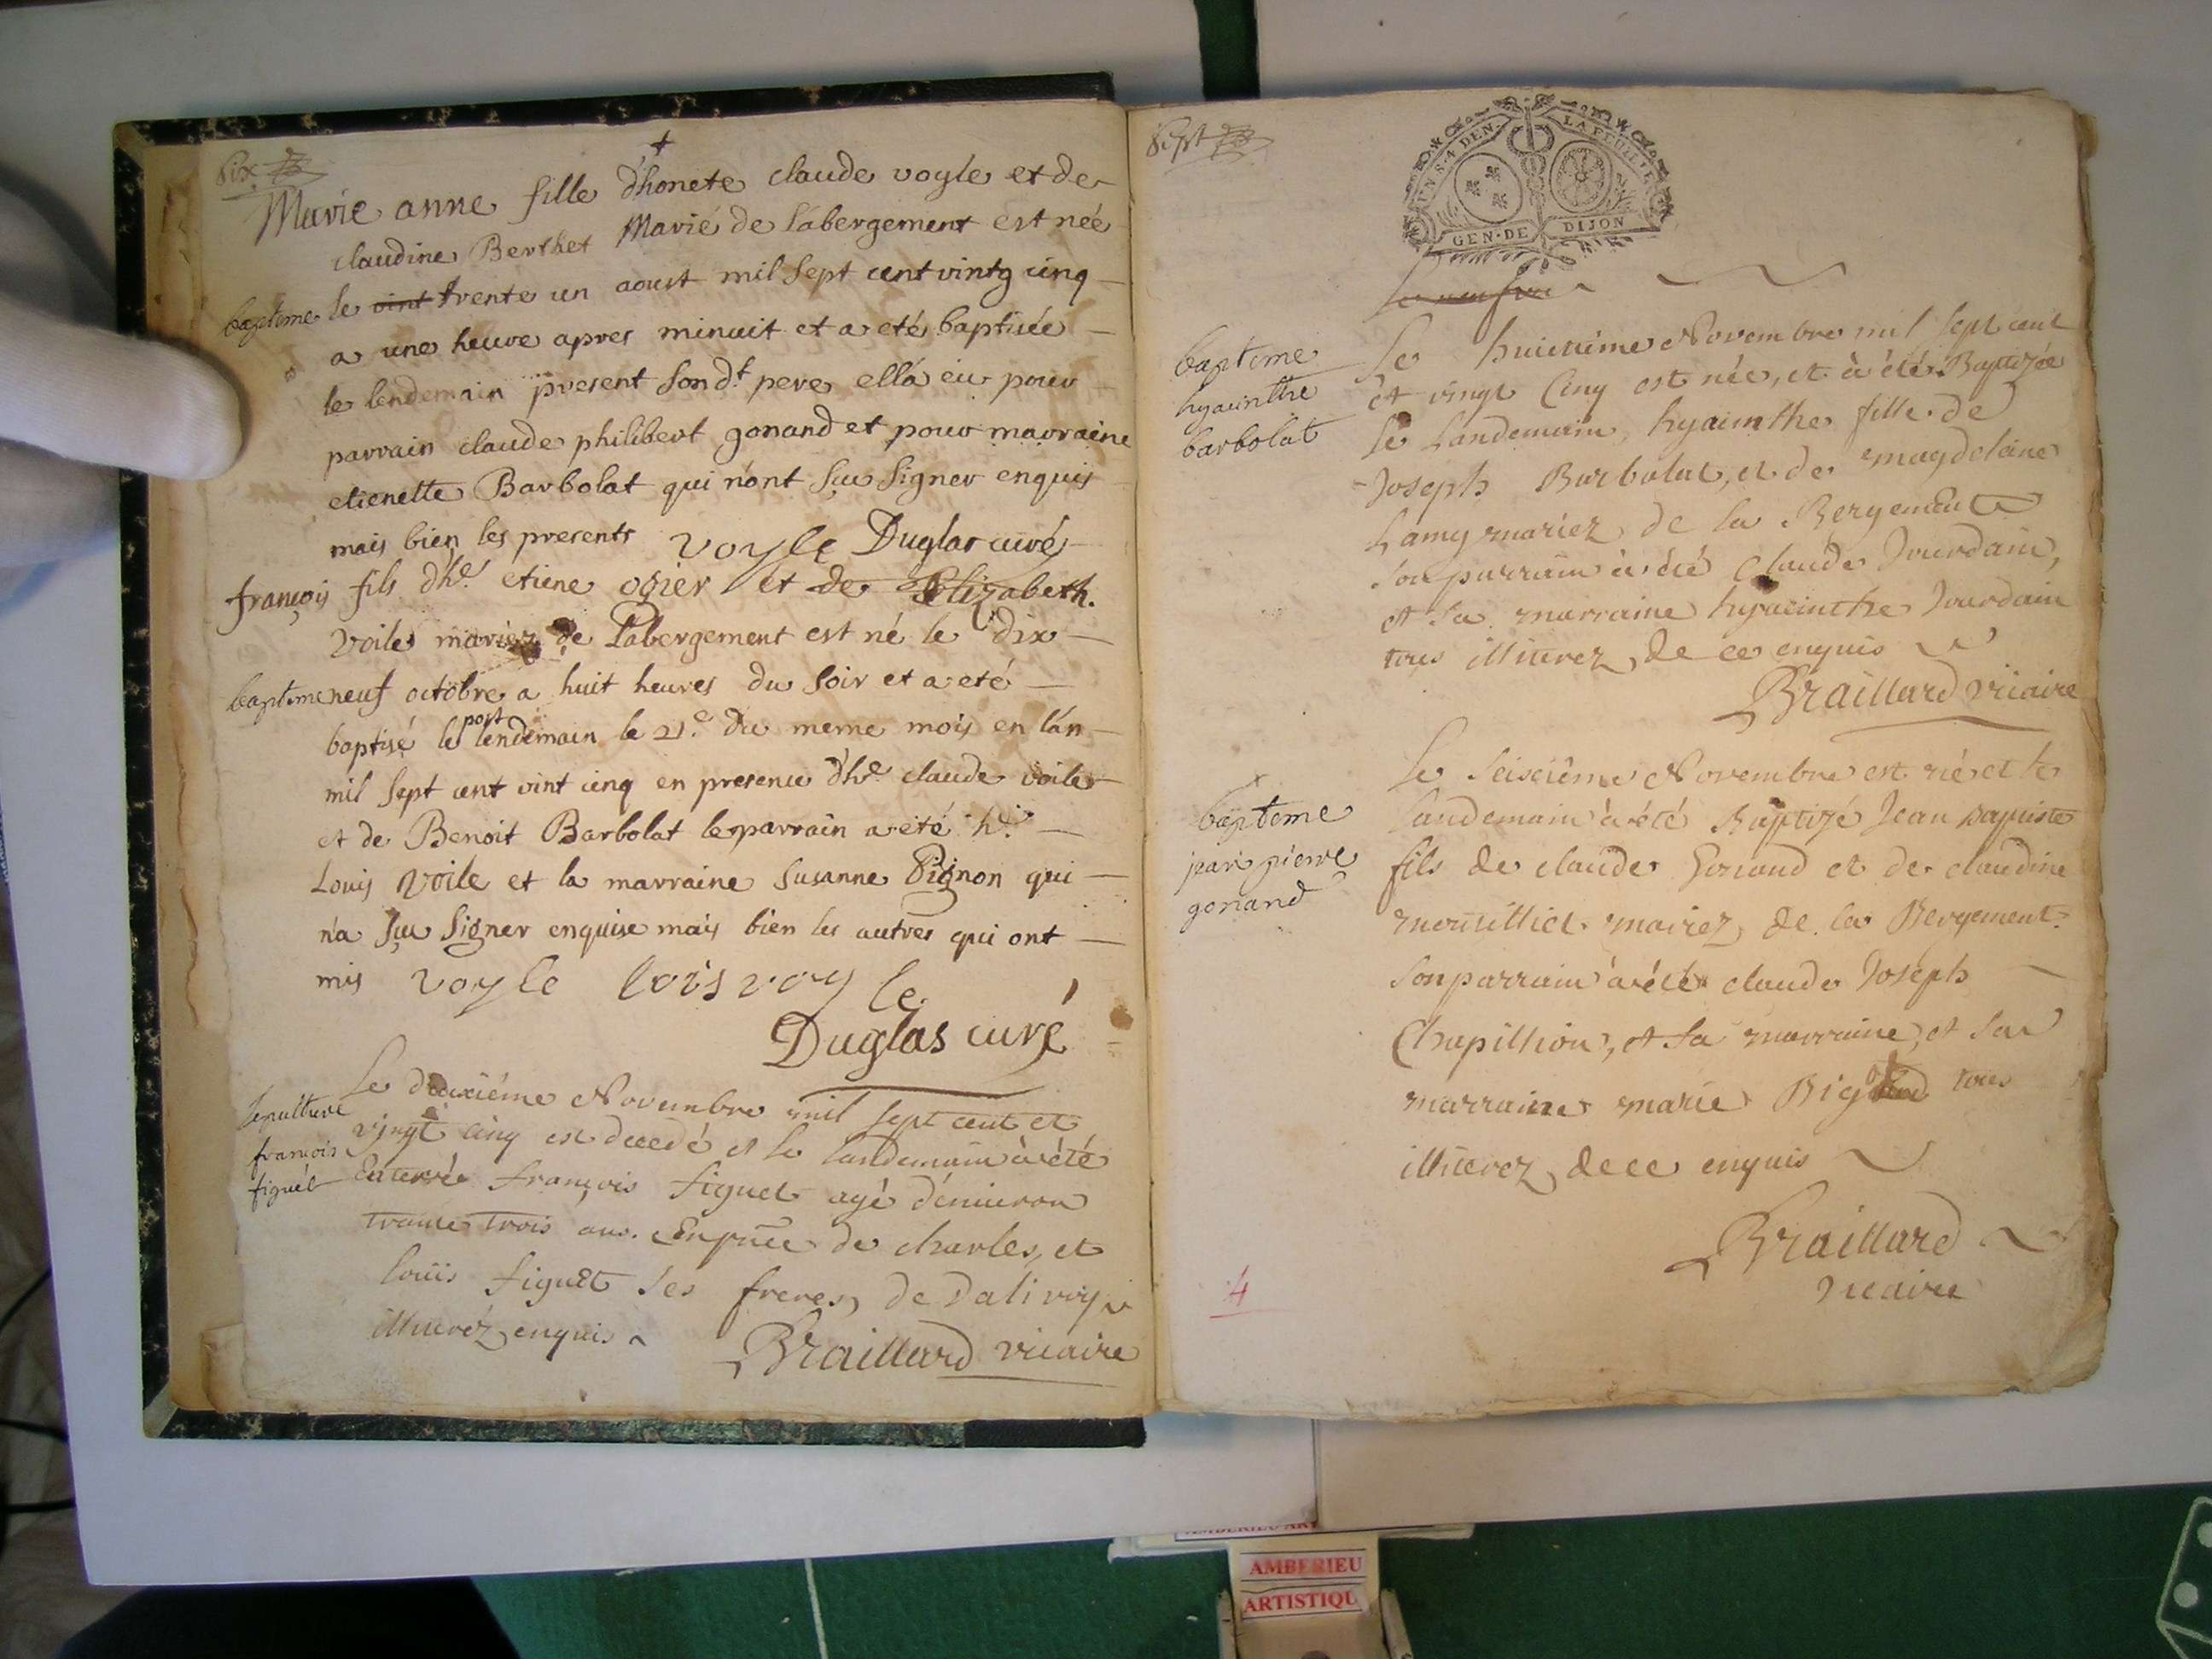 Six
Marie anne fille d'honete claude voyle et de
claudine Berthet Marié de Labergement est née
bapteme le vint trente un aoust mil sept cent vintg cinq
a une heure apres minuit et a eté baptisée
le lendemain present son d.t pere ella eu pour
parrain claude philibert gonand et pour marraine
etienette Barbolat qui n'ont sçu signer enquis
mais bien les presents voyle Duglas curé
françois fils d'h.e etiene ogier et de Elizabeth
Voile mariez de Labergement est né le dix
bapteme neuf octobre a huit heures du soir et a eté
post
baptisé le lendemain le 21.e du meme mois en l'an
mil sept cent vint cinq en presence d'h.e claude voile
et de Benoit Barbolat le parrain a eté h.e
Louis Voile et la marraine susanne Pignon qui
n'a sçu signer enquise mais bien les autres qui ont
mis voyle lois voyle
Duglas curé
Le deuxiéme Novembre mil sept cent et
sepulture
françois
figuet
vingt cinq est decedé et le landemain à été
Enterrée françois figuet agé d'enuiron
trante trois ans. En pñce de charles, et
loüis figuet ses freres, de Dalivoy
illiterez enquis Braillard vicaire
Sept
UN S. 4 DEN. LA FEUILLE
GEN. DE DIJON
bapteme
hyacinthe
barbolat
Le huictième Novembre mil sept cent
et vingt Cinq est née, et à été Baptizée
le Landemain, hyacinthe fille de
Joseph Barbolat, et de magdelaine
Lamy mariez de la Bergement
son parrain à été Claude Jourdain,
et sa marraine hyacinthe Jourdain
tous illiterez de ce enquis
Braillard vicaire
bapteme
jean pierre
gonand
Le seiziême Novembre est né et le
landemain à été Baptizé Jean Baptiste
fils de claude Gonand et de claudine
montilliet mariez, de la Bergement
son parrain à été claude Joseph
Chapillion, et sa marraine, et sa
marraine marie tous
illiterez, de ce enquis
Braillard
vicaire
4
AMBERIEU
ARTISTIQU